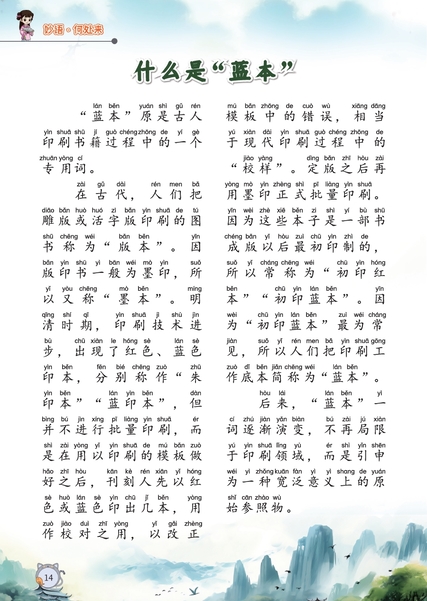 妙语·何处来
什么是“蓝本”
lán běn yuán shì gǔ rén
“蓝本”原是古人
yìn shuā shū jí guò chéng zhōng de yí gè
印刷书籍过程中的一个
zhuān yòng cí
专用词。
zài gǔ dài rén men bǎ
在古代，人们把
diāo bǎn huò huó zì bǎn yìn shuā de tú
雕版或活字版印刷的图
shū chēng wéi bǎn běn yīn
书称为“版本”。因
bǎn yìn shū yì bān wéi mò yìn suǒ
版印书一般为墨印，所
yǐ yòu chēng mò běn míng
以又称“墨本”。明
qīng shí qī yìn shuā jì shù jìn
清时期，印刷技术进
bù chū xiàn le hóng sè lán sè
步，出现了红色、蓝色
yìn běn fēn bié chēng zuò zhū
印本，分别称作“朱
yìn běn lán yìn běn dàn
印本”“蓝印本”，但
bìng bù jìn xíng pī liàng yìn shuā ér
并不进行批量印刷，而
shì zài yòng yǐ yìn shuā de mú bǎn zuò
是在用以印刷的模板做
hǎo zhī hòu kān kè rén xiān yǐ hóng
好之后，刊刻人先以红
sè huò lán sè yìn chū jǐ běn yòng
色或蓝色印出几本，用
zuò jiào duì zhī yòng yǐ gǎi zhèng
作校对之用，以改正
mú bǎn zhōng de cuò wù xiāng dāng
模板中的错误，相当
yú xiàn dài yìn shuā guò chéng zhōng de
于现代印刷过程中的
jiào yàng dìng bǎn zhī hòu zài
“校样”。定版之后再
yòng mò yìn zhèng shì pī liàng yìn shuā
用墨印正式批量印刷。
yīn wèi zhè xiē běn zi shì yí bù shū
因为这些本子是一部书
chéng bǎn yǐ hòu zuì chū yìn zhì de
成版以后最初印制的，
suǒ yǐ cháng chēng wéi chū yìn hóng
所以常称为“初印红
běn chū yìn lán běn yīn
本”“初印蓝本”。因
wèi chū yìn lán běn zuì wéi cháng
为“初印蓝本”最为常
jiàn suǒ yǐ rén men bǎ yìn shuā gōng
见，所以人们把印刷工
zuò dǐ běn jiǎn chēng wéi lán běn
作底本简称为“蓝本”。
hòu lái lán běn yì
后来，“蓝本”一
cí zhú jiàn yǎn biàn bú zài jú xiàn
词逐渐演变，不再局限
yú yìn shuā lǐng yù ér shì yǐn shēn
于印刷领域，而是引申
wéi yì zhǒng kuān fàn yì yì shang de yuán
为一种宽泛意义上的原
shǐ cān zhào wù
始参照物。
14